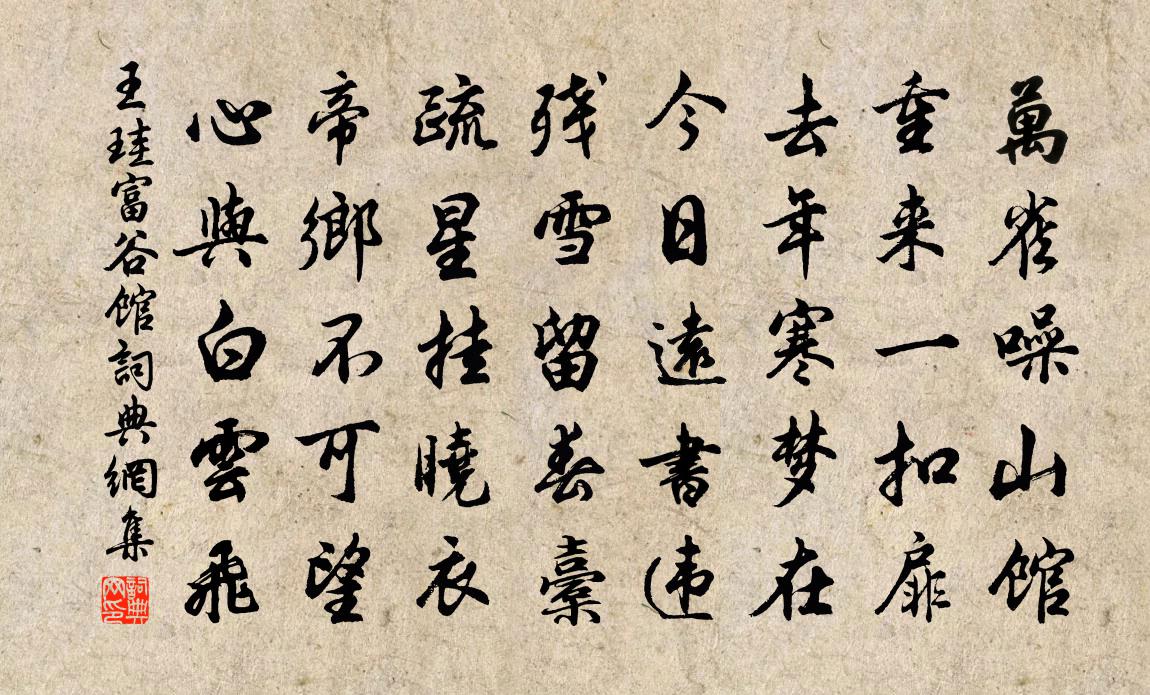 萬雀噪山館
重来一扣扉
去年寒梦在
今日遠書违
残雪留春橐
疏星挂曉衣
帝鄉不可望
心與白雲飛
王珪富谷館詞典網集
詞典网印